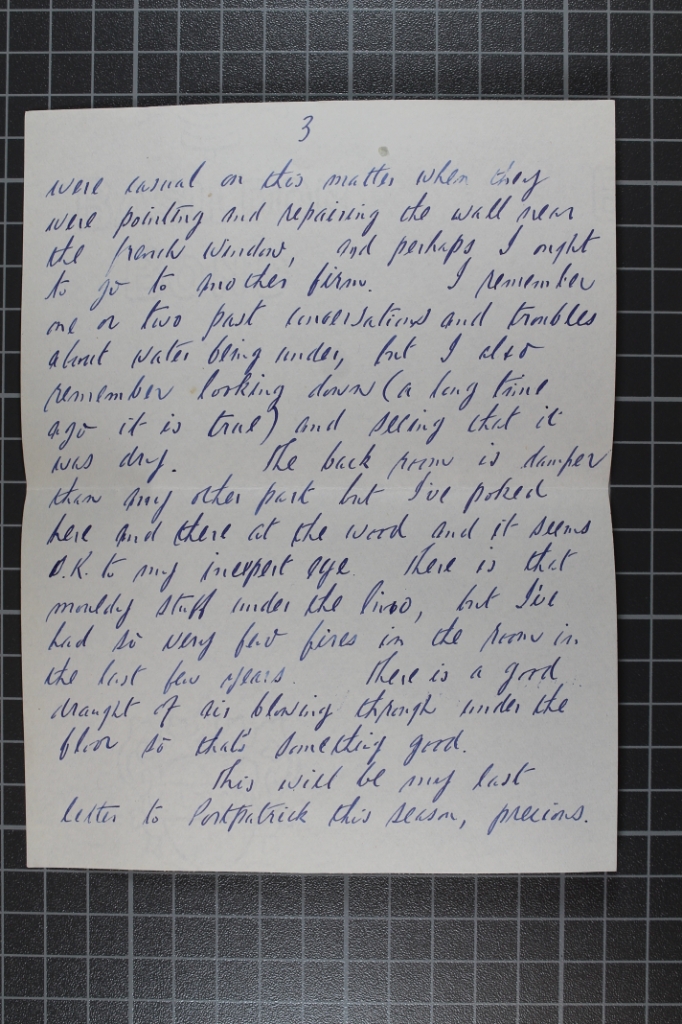 3
were casual on this matter when they
were pointing and repairing the wall near
the french window, and perhaps I ought
to go to another firm. I remember
one or two past conversations and troubles
about water being under, but I also
remember looking down (a long time
ago it is true) and seeing that it
was dry. The back room is damper
than any other part but I've poked
here and there at the wood and it seems
O.K. to my inexpert eye. There is that
mouldy stuff under the lino, but I've
had so very few fires in the room in
the last few years. There is a good
draught of air blowing through under the
floor so that's something good.
This will be my last
letter to Portpatrick this season, precious.